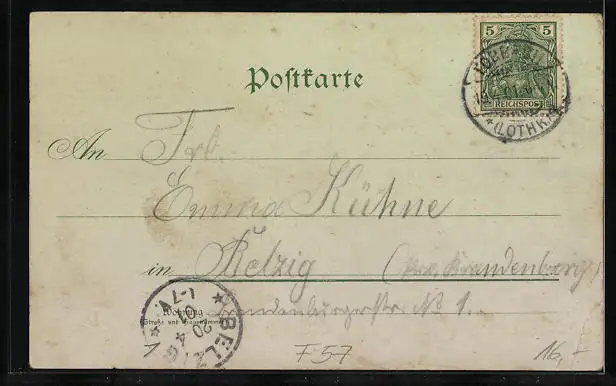 5 5
REICHSPOST
(LOTHR.)
Postkarte
An Frl.
Emma Kühne
in Belzig (Bez. Brandenburg)
Wohnung
Brandenburgerstr. No 1.
BELZIG
20 4
01
1-7V.
F57
16,-